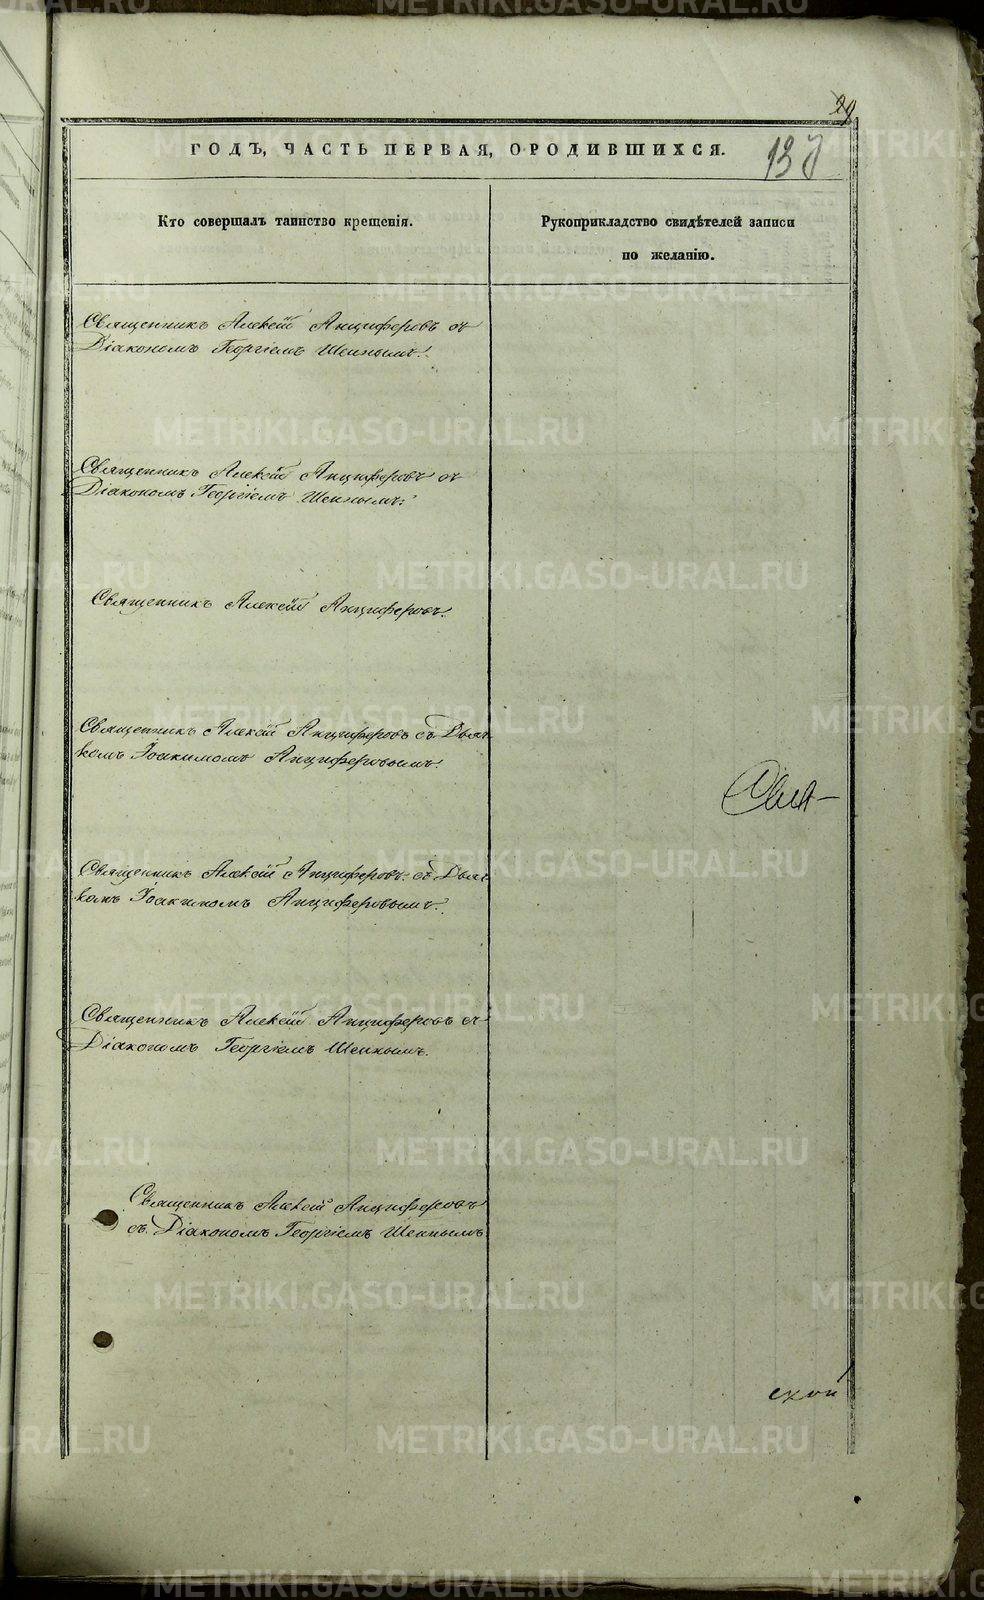 29
ГОДЪ, ЧАСТЬ ПЕРВАЯ, О РОДИВШИХСЯ.
Кто совершалъ таинство крещенія.
Рукоприкладство свидѣтелей записи
по желанію.
Священникъ Алексій Анциферовъ съ
Діакономъ Георгіемъ
Священникъ Алексій Анциферовъ съ
Діакономъ Георгіемъ
Священникъ Алексій Анциферовъ.
Священникъ Алексій Анциферовъ съ Дьяч
комъ Іоакимомъ Анциферовымъ.
Священникъ Алексій Анциферовъ съ Дьяч
комъ Іоакимомъ Анциферовымъ.
Священникъ Алексій Анциферовъ съ
Діакономъ Георгіемъ
Священникъ Алексій Анциферовъ
съ Діакономъ Георгіемъ
ской
METRIKI.GASO-URAL.RU